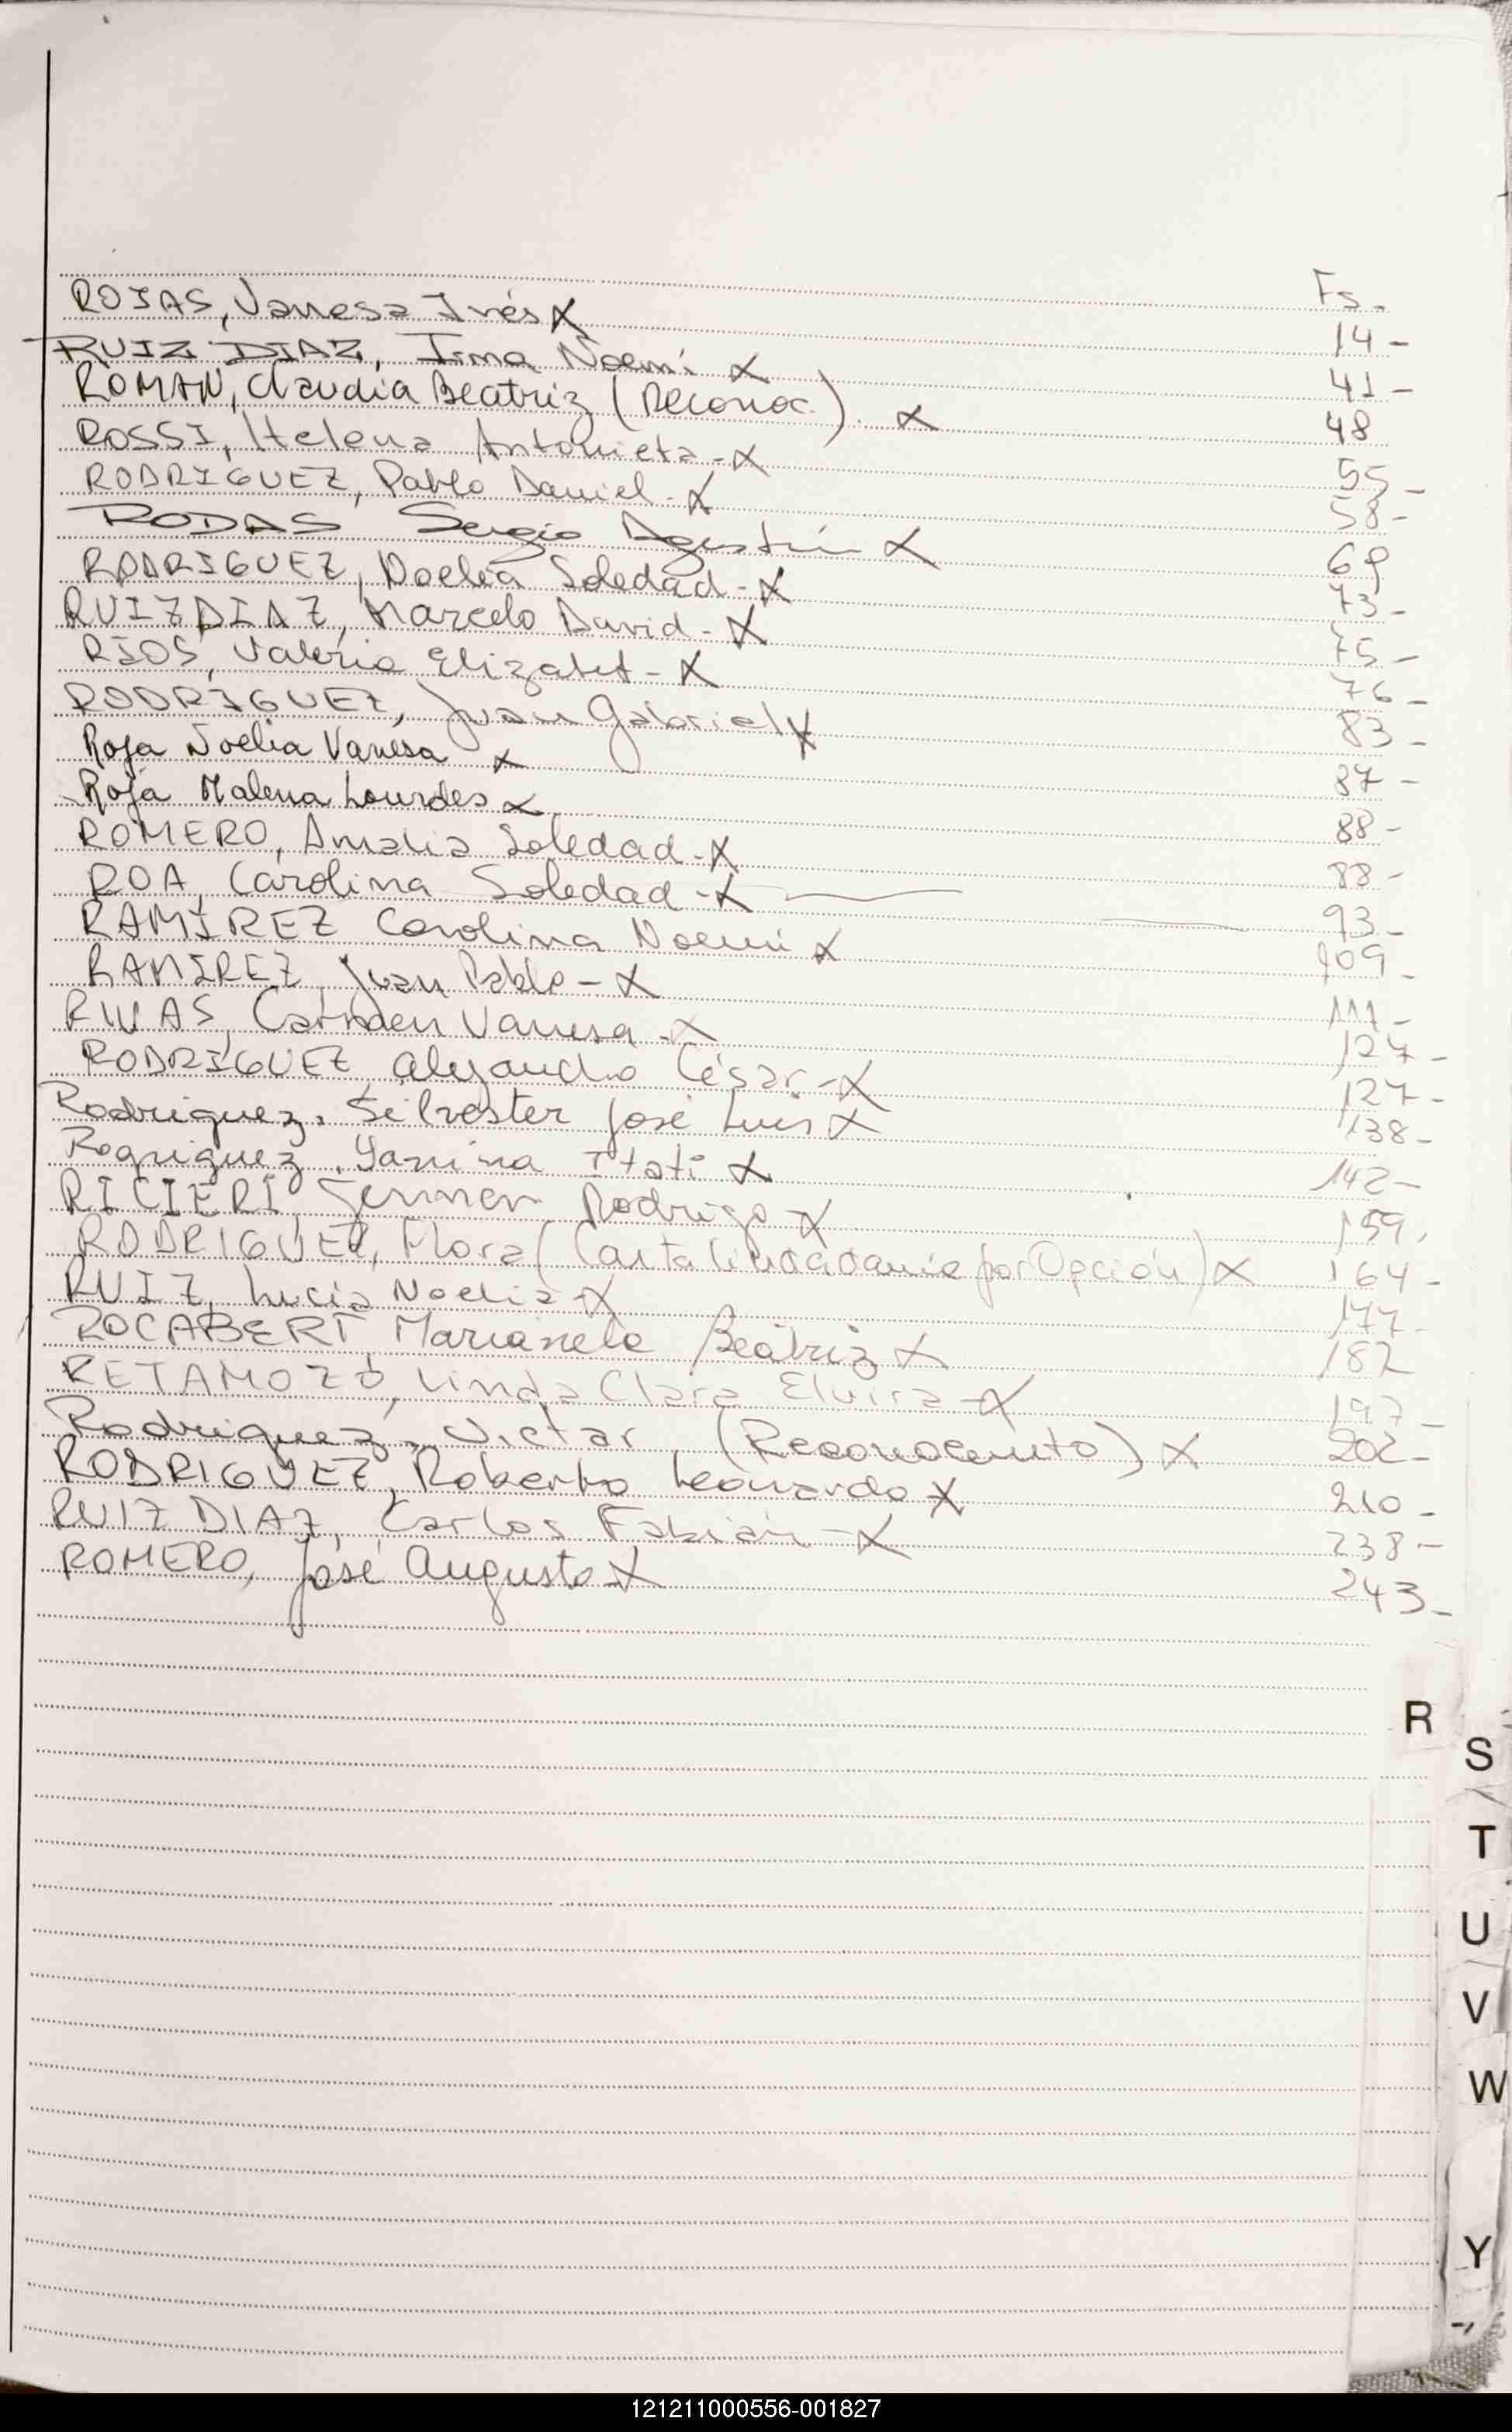 Fs.
ROJAS, Vanesa Inés X 14-
RUIZ DIAZ, Irma Noemi X 41-
ROMAN, Claudia Beatriz (Reconoc.) X 48
ROSSI, Helena Antonieta - X 55-
RODRIGUEZ, Pablo Daniel - X 58-
RODAS Sergio Agustín X 69
RODRIGUEZ, Noelia Soledad - X 73-
RUIZ DIAZ, Marcelo David - X 75-
RIOS, Valeria Elizabet - X 76-
RODRIGUEZ, Juan Gabriel X 83-
Roja Noelia Vanesa X 87-
Roja Malena Lourdes X 88-
ROMERO, Amalia Soledad - X 88-
ROA, Carolina Soledad - X 93-
RAMIREZ Carolina Noemi X 109-
RAMIREZ, Juan Pablo - X 111-
RIVAS, Carmen Vanesa - X 127-
RODRIGUEZ, Alejandro César - X 127-
Rodriguez, Silvester José Luis X 138-
Rogriguez, Yanina Itati X 142-
RICIERI, German Rodrigo X 159,
RODRIGUEZ, Flora (Carta Ciudadanía por Opción) X 164-
RUIZ, Lucía Noelia - X 177-
ROCABERT Marianela Beatriz X 182
RETAMOZO, Linda Clara Elvira - X 197-
Rodriguez, Victar, (Reconocemito) X 202-
RODRIGUEZ, Roberto Leonardo X 210-
RUIZ DIAZ, Carlos Fabián - X 238-
ROMERO, José Augusto X 243-
R
S
T
U
V
W
Y
121211000556-001827